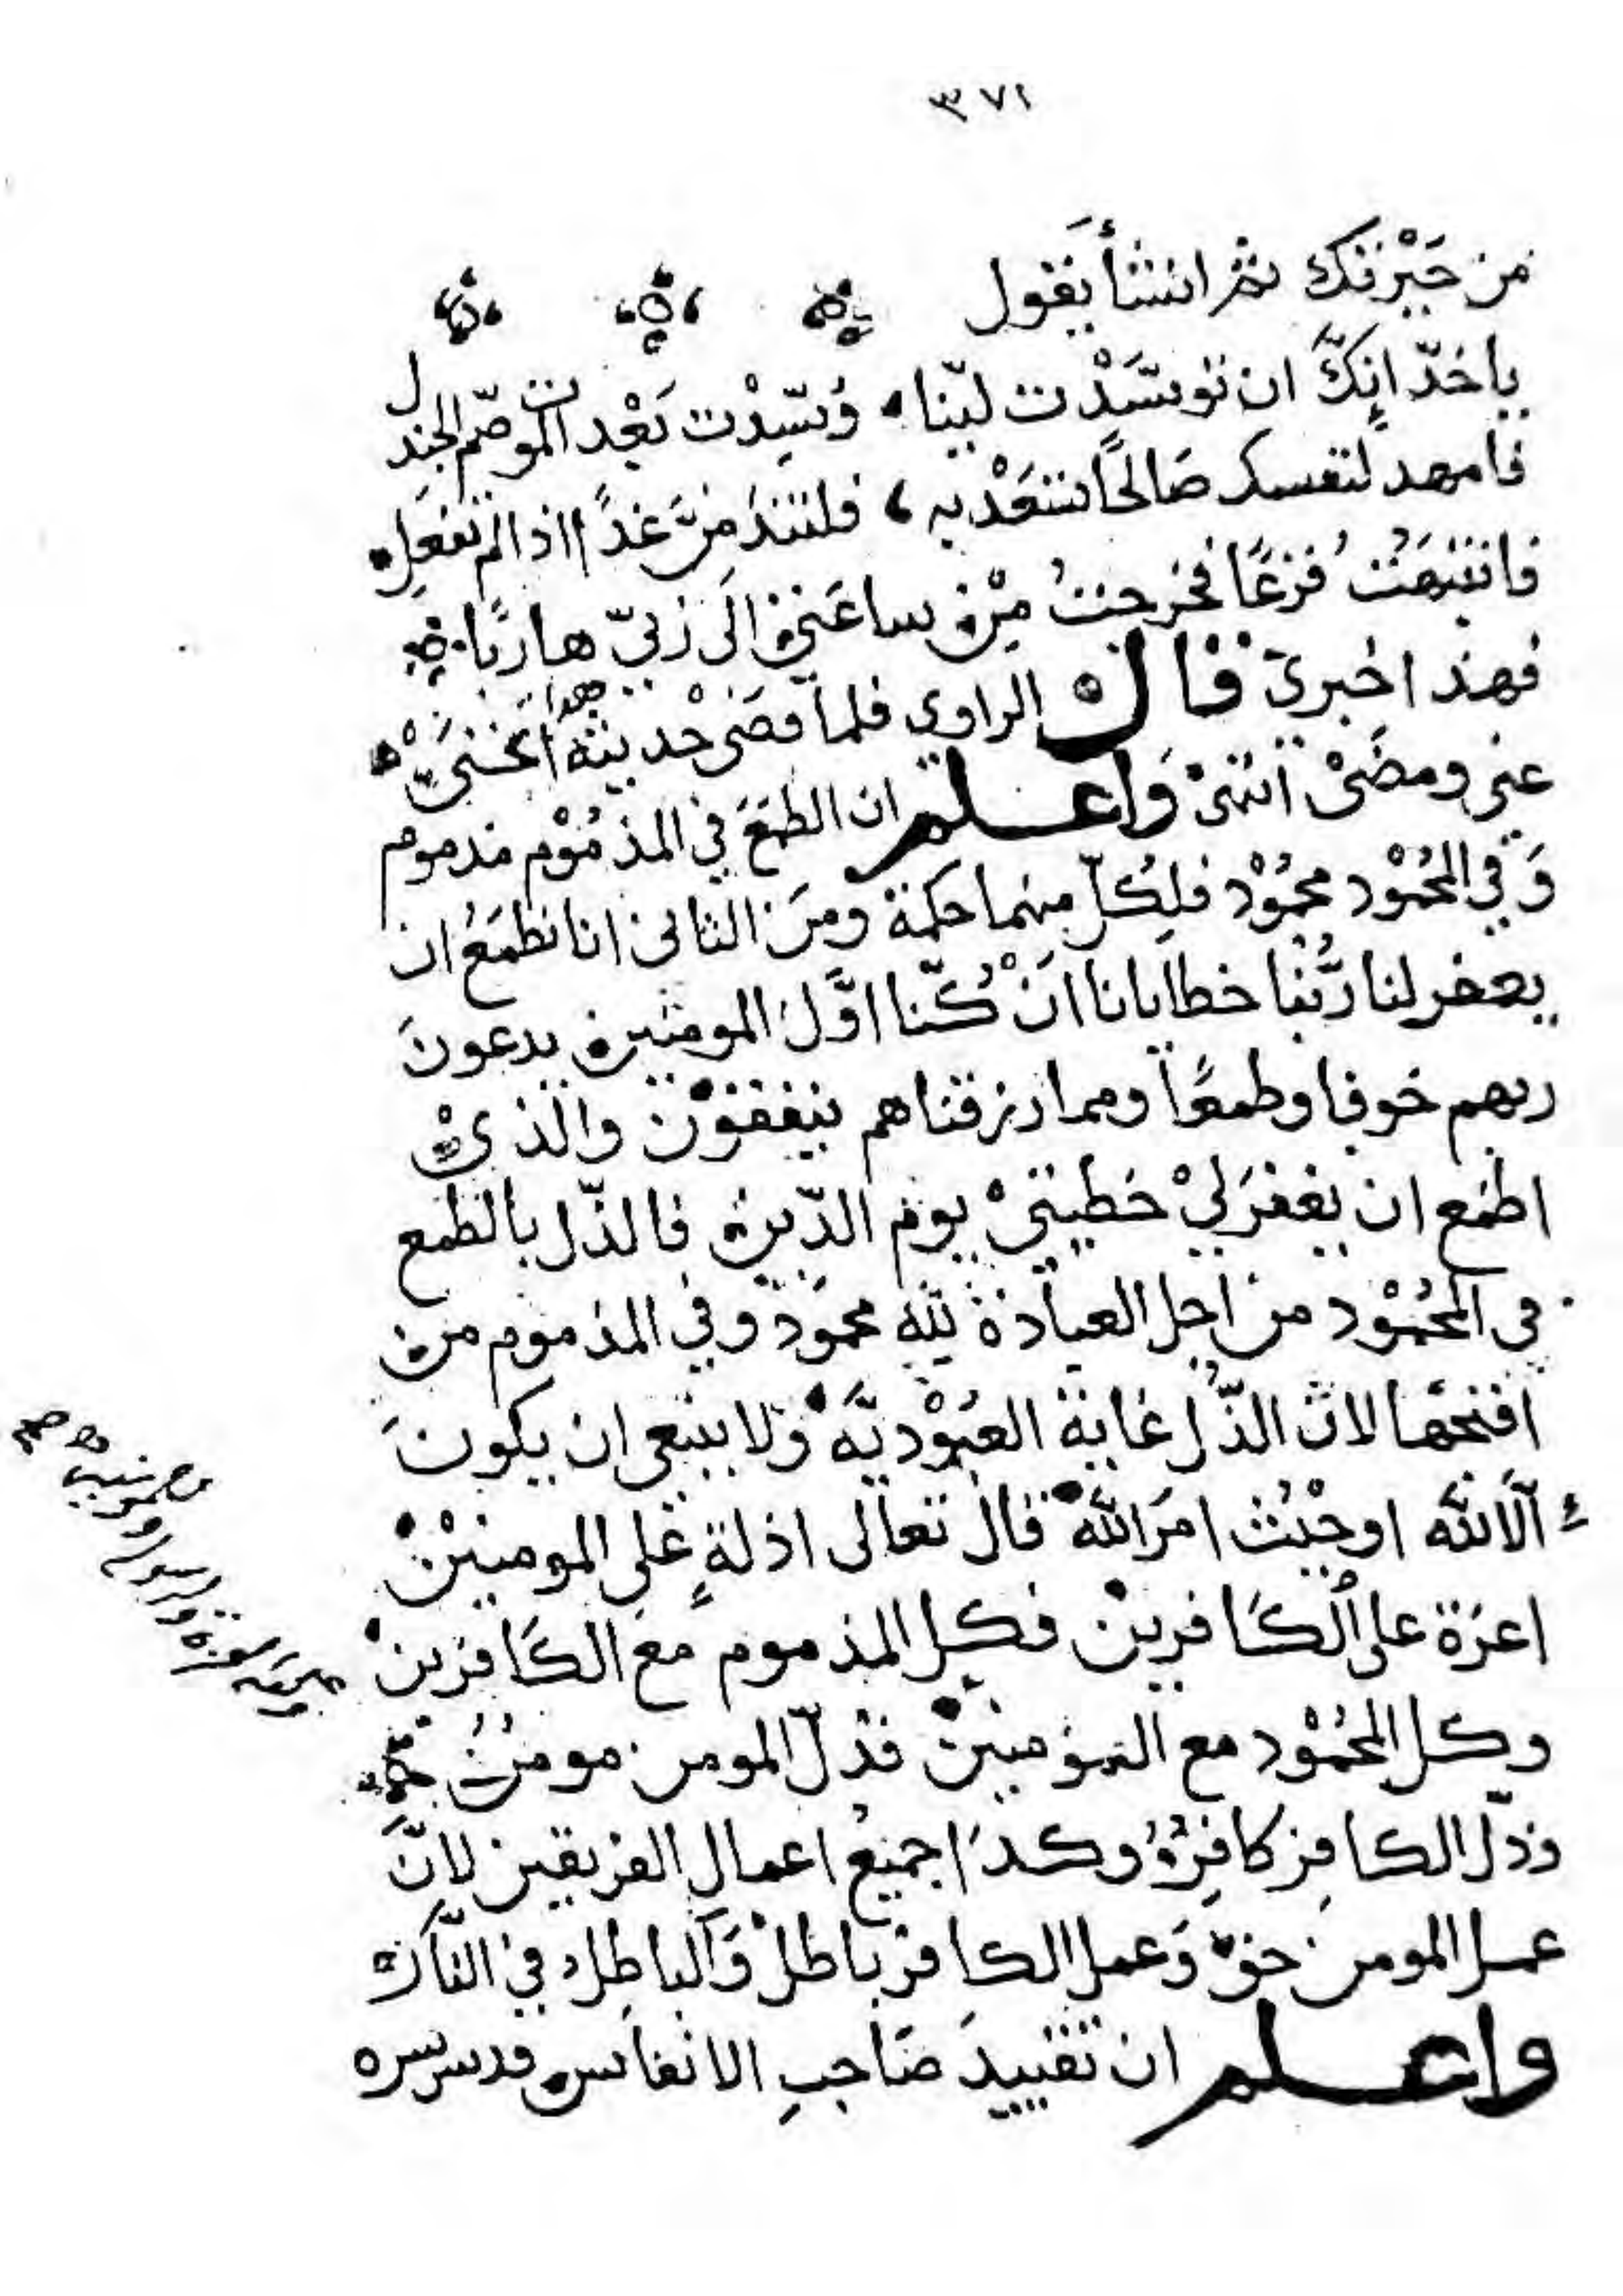 ٣٧١
من حَيْرتك ثم انشأ يَقول
يا خدّ انِكّ ان توسّدْت ليّنا، وُسّدْت بَعْد الموت صّم الجندل
فامهد لنفسك صَالحًا تسْعَدْ به، فلتندمنَّ غدًا اذا لم تفعَلِ
فانتبَهتُ فزعًا فخرجتُ مِنْ ساعَتي الَى رَبيّ هاربًا
فهذا خبريْ قال الراوي فلما قصَىْ حديثه
عني ومضَىْ انتهىْ وَاعلم ان الطمَعَ في المذمُوْم مذموم
وَفي المحُمْود محمُوْد فلِكُلّ منهما حكمة ومنَ الثاني انا نطمَعُ ان
يغفر لنا رَبُّنا خطايانا انَْ كُنّا اوَّلَ المومنين يدعونَ
ربهم خوفا وطمعًا ومما رزقناهم ينفقوْن والذيْ
اطمَع ان يغفرَ ليْ خطيئتيْ يومَ الدّين فالذّل بالطمع
في المحُمْوْد من اجل العبادَة لِلّه محموْد وفي المذموم من
اقبَحها لان الذّل غاية العبُوْديَّة ولا ينبغي ان يكونَ
الّا لله او حيْث امرَ اللهُ قال تعالى اذلةٍ عَلى المومنيْنْ
اعزة على الكَافرينْ فكل المذموم معَ الكَافرين
وكل المحُمْوْد مع المؤمنينْ فذلّ المومن مومنٌ
وذلّ الكافِر كافِرٌ وكذا جميعُ اعمال الفريقين لانَّ
عمل المومن حقّ وَعمل الكافر باطلْ وَالباطِل في النّار
واعلم ان تقييدَ صَاحبِ الانفاس قدس سره